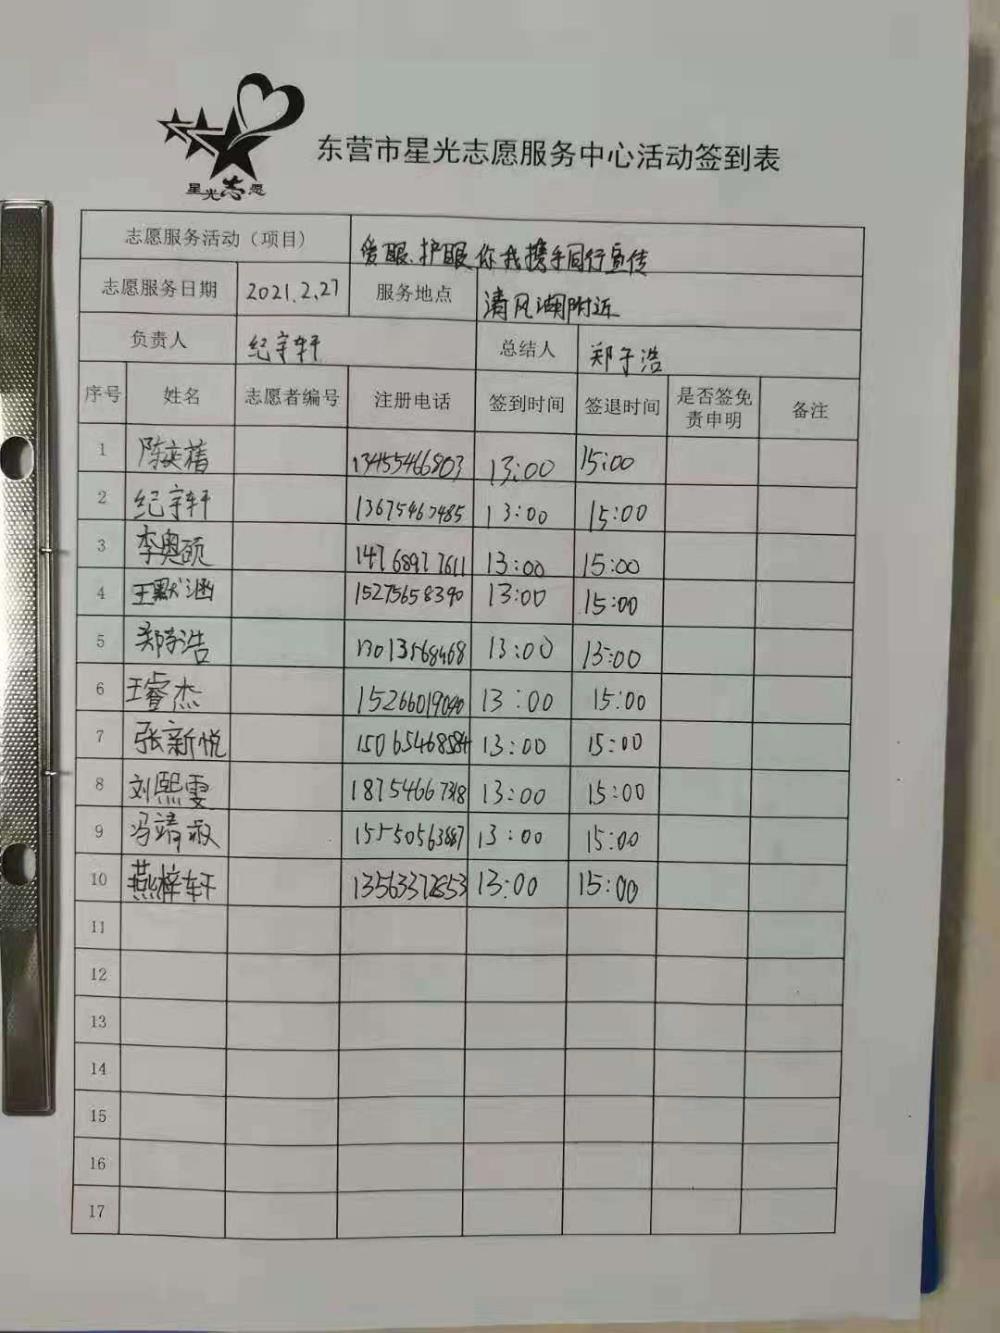 星光志愿
东营市星光志愿服务中心活动签到表
志愿服务活动（项目） 爱眼、护眼你我携手同行宣传
志愿服务日期 2021.2.27 服务地点 清风湖附近
负责人 纪宇轩 总结人 郑子浩
序号 姓名 志愿者编号 注册电话 签到时间 签退时间 是否签免责申明 备注
1 陈奕禧 13455466803 13:00 15:00
2 纪宇轩 13675467485 13:00 15:00
3 李奥硕 14768977611 13:00 15:00
4 王默涵 15275658390 13:00 15:00
5 郑子浩 13013568468 13:00 15:00
6 王睿杰 15266019090 13:00 15:00
7 张新悦 15065468584 13:00 15:00
8 刘熙雯 18754667318 13:00 15:00
9 冯靖淑 15550563887 13:00 15:00
10 燕梓轩 13563372853 13:00 15:00
11
12
13
14
15
16
17